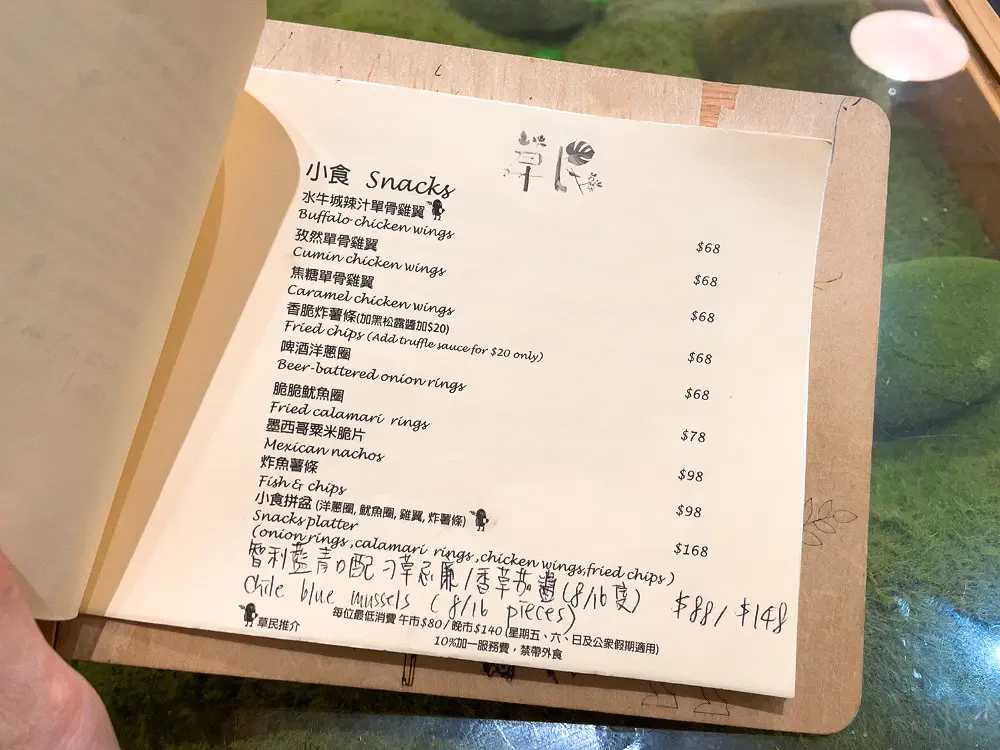 草民
小食 Snacks
水牛城辣汁單骨雞翼
Buffalo chicken wings $68
孜然單骨雞翼
Cumin chicken wings $68
焦糖單骨雞翼
Caramel chicken wings $68
香脆炸薯條(加黑松露醬加$20)
Fried chips (Add truffle sauce for $20 only) $68
啤酒洋蔥圈
Beer-battered onion rings $68
脆脆魷魚圈
Fried calamari rings $78
墨西哥粟米脆片
Mexican nachos $98
炸魚薯條
Fish & chips $98
小食拼盆 (洋蔥圈, 魷魚圈, 雞翼, 炸薯條)
Snacks platter $168
(onion rings ,calamari rings ,chicken wings,fried chips )
智利藍青口配 /香草茄醬 (8/16隻) $88/ $148
Chile blue mussels ( 8/16 pieces)
草民推介
每位最低消費 午市$80 / 晚市$140 (星期五、六、日及公眾假期適用)
10%加一服務費，禁帶外食